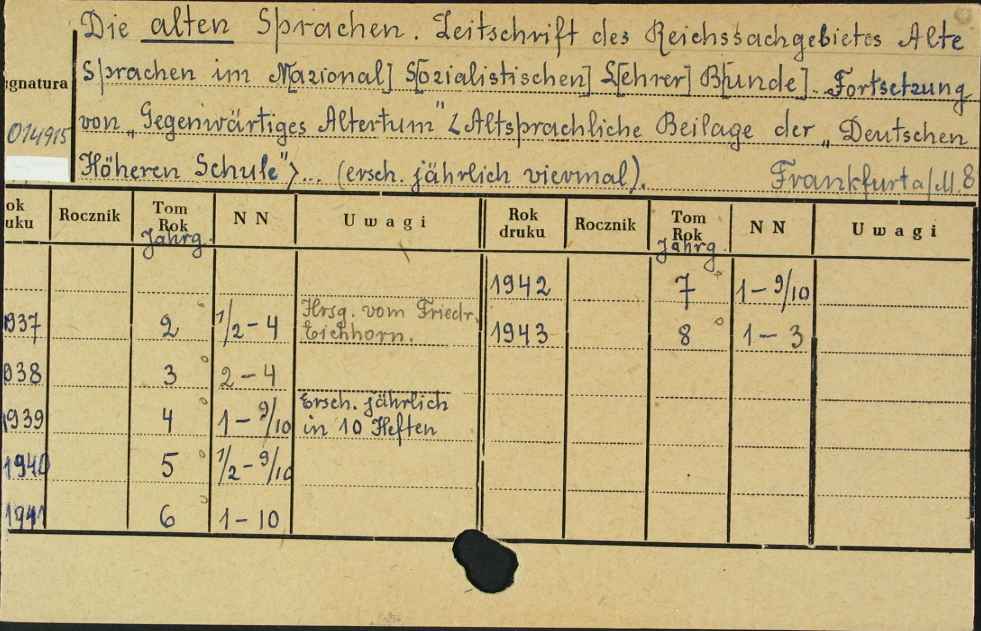 Die alten Sprachen. Zeitschrift des Reichssachgebietes Alte
Sprachen im Na[zional] S[ozialistischen] L[ehrer] B[unde]. Fortsetzung
von „Gegenwärtiges Altertum" <Altsprachliche Beilage der „Deutschen
Höheren Schule">... (ersch. jährlich viermal). Frankfurt a/M. 8
gnatura
014915
ok uku Rocznik Tom Rok Jahrg. N N Uwagi Rok druku Rocznik Tom Rok Jahrg. N N Uwagi
1942 7 1-9/10
937 2 1/2-4 Hrsg. vom Friedr. Eichhorn. 1943 8 1-3
938 3 2-4
1939 4 1-9/10 Ersch. jährlich in 10 Heften
1940 5 1/2-9/10
1941 6 1-10